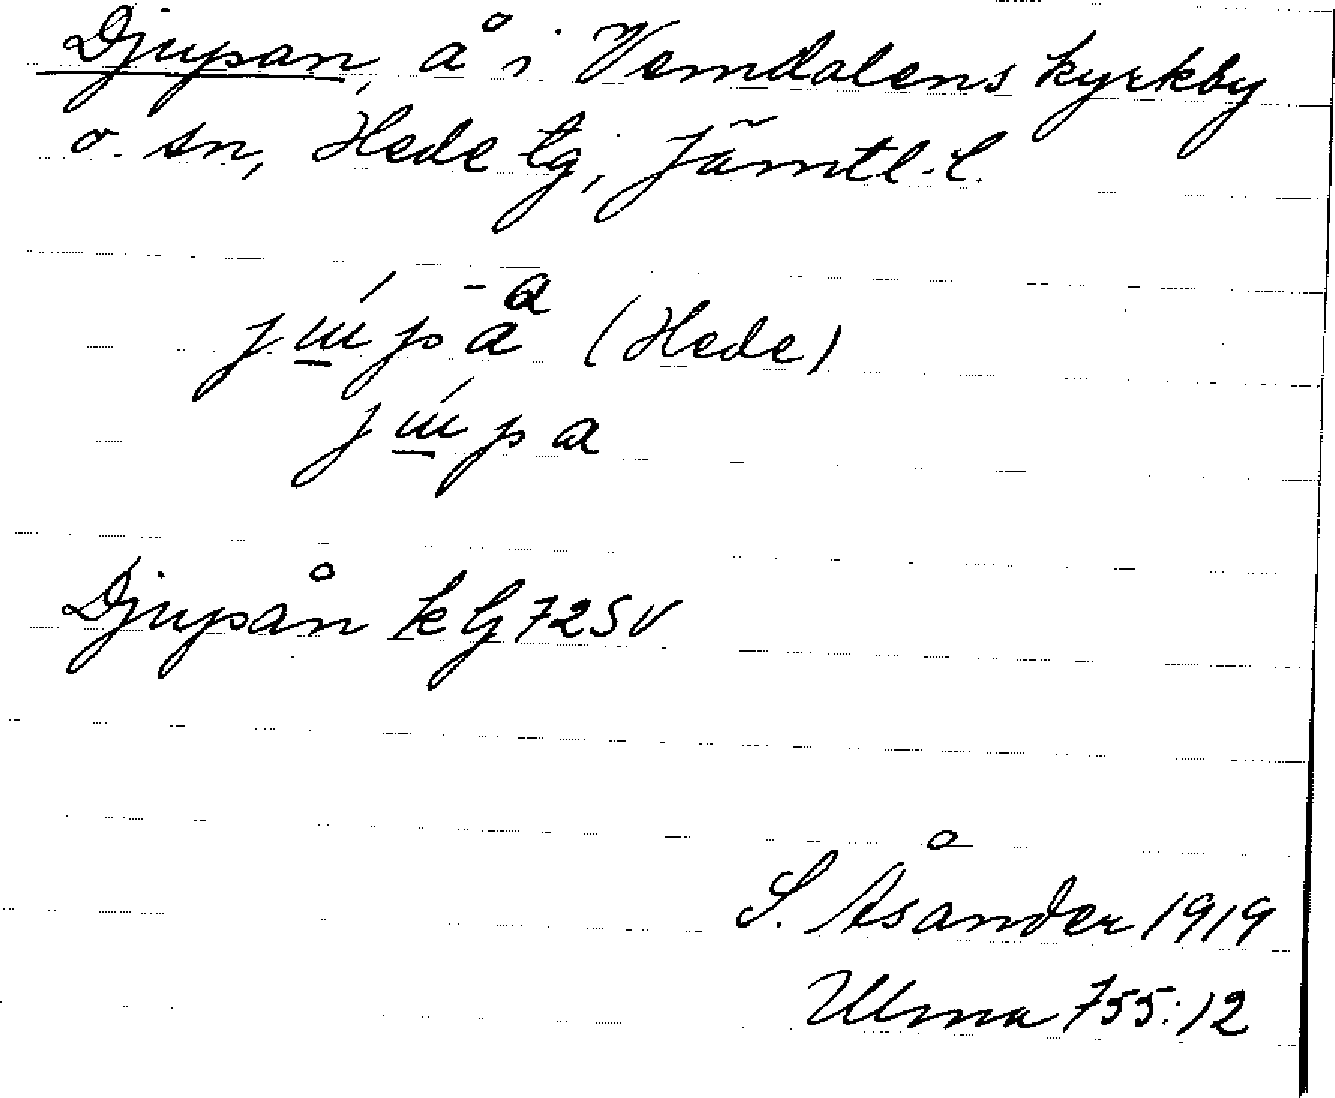 Djupan, å i Vemdalens kyrkby
o. sn, Hede tg, Jämtl. l.
(Hede)
Djupån kG 72SV
S. Åsander 1919
Ulma 755:12